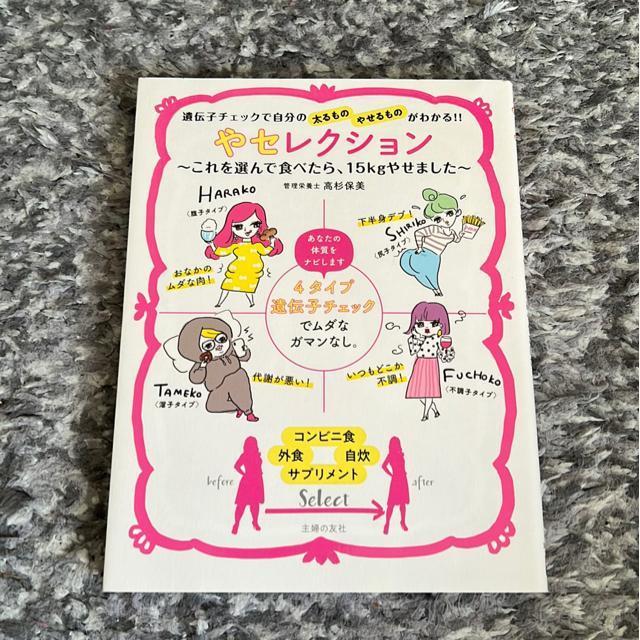 遺伝子チェックで自分の 太るもの やせるもの がわかる!!
やセレクション
～これを選んで食べたら、15kgやせました～
管理栄養士 高杉保美
HARAKO
(腹子タイプ)
おなかの
ムダな肉!
下半身デブ!
SHIRIKO
(尻子タイプ)
あなたの
体質を
ナビします
4タイプ
遺伝子チェック
でムダな
ガマンなし。
TAMEKO
(溜子タイプ)
代謝が悪い!
いつもどこか
不調!
FUCHOKO
(不調子タイプ)
コンビニ食
外食 自炊
サプリメント
before
after
Select
主婦の友社